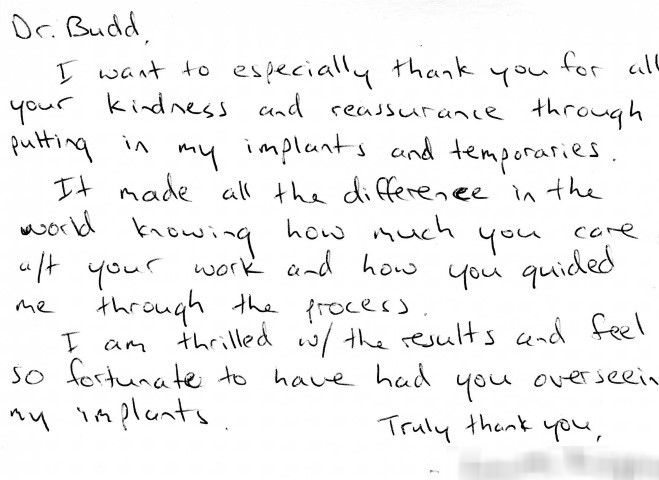 Dr. Budd,
I want to especially thank you for all
your kindness and reassurance through
putting in my implants and temporaries.
It made all the difference in the
world knowing how much you care
a/t your work and how you guided
me through the process.
I am thrilled w/ the results and feel
so fortunate to have had you overseein
my implants.
Truly thank you,